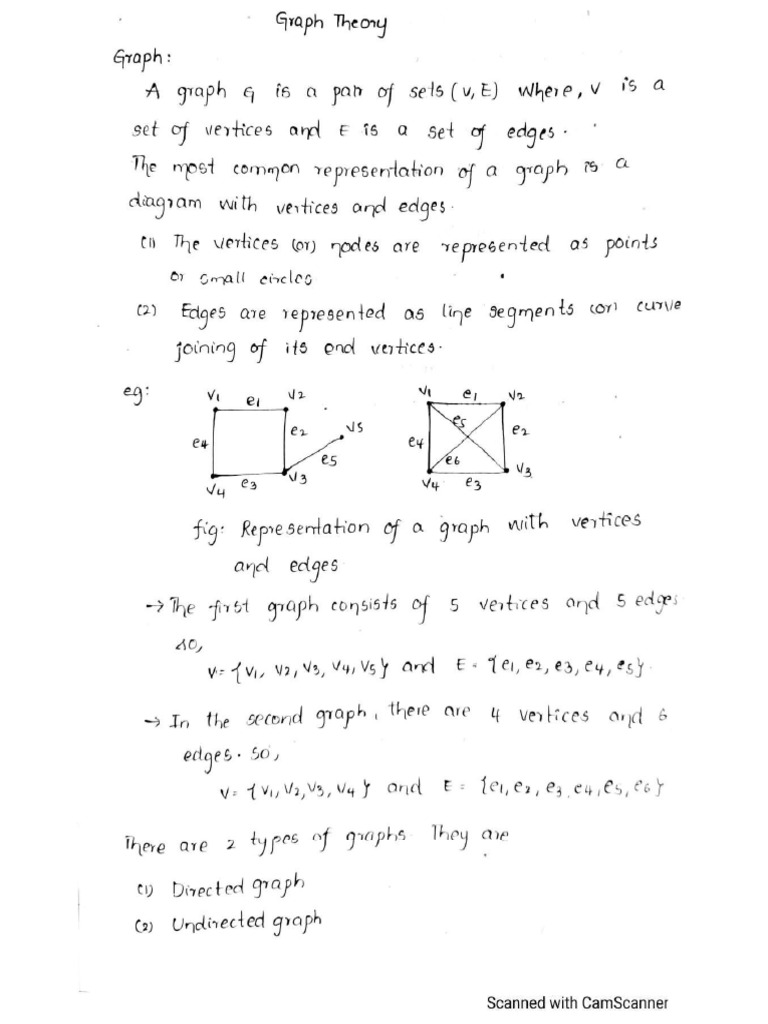 Graph Theory
Graph:
A graph G is a pair of sets (V, E) where, V is a
set of vertices and E is a set of edges.
The most common representation of a graph is a
diagram with vertices and edges.
(1) The vertices (or) nodes are represented as points
or small circles
(2) Edges are represented as line segments (or) curve
joining of its end vertices.
eg:
V1 e1 V2
e4 e2 V5
e5
V4 e3 V3
V1 e1 V2
e5
e4 e2
e6
V4 e3 V3
fig: Representation of a graph with vertices
and edges
→ The first graph consists of 5 vertices and 5 edges
so,
V = {V1, V2, V3, V4, V5} and E = {e1, e2, e3, e4, e5}.
→ In the second graph, there are 4 vertices and 6
edges. so,
V = {V1, V2, V3, V4} and E = {e1, e2, e3, e4, e5, e6}
There are 2 types of graphs. They are
(1) Directed graph
(2) Undirected graph
Scanned with CamScanner